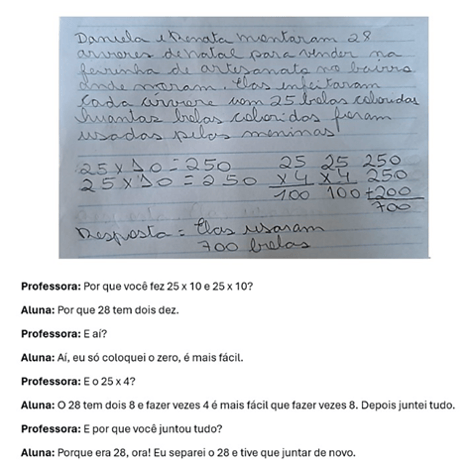 Daniela e Renata montaram 28
arvores de natal para vender na
feirinha de artesanato no bairro
onde moram. Elas enfeitaram
cada arvore com 25 bolas coloridas
Quantas bolas coloridas foram
usadas pelas meninas
25 x 10 = 250 25 25 250
25 x 10 = 250 x 4 x 4 250
100 100 +200
700
Resposta = Elas usaram
700 bolas
Professora: Por que você fez 25 x 10 e 25 x 10?
Aluna: Por que 28 tem dois dez.
Professora: E aí?
Aluna: Aí, eu só coloquei o zero, é mais fácil.
Professora: E o 25 x 4?
Aluna: O 28 tem dois 8 e fazer vezes 4 é mais fácil que fazer vezes 8. Depois juntei tudo.
Professora: E por que você juntou tudo?
Aluna: Porque era 28, ora! Eu separei o 28 e tive que juntar de novo.